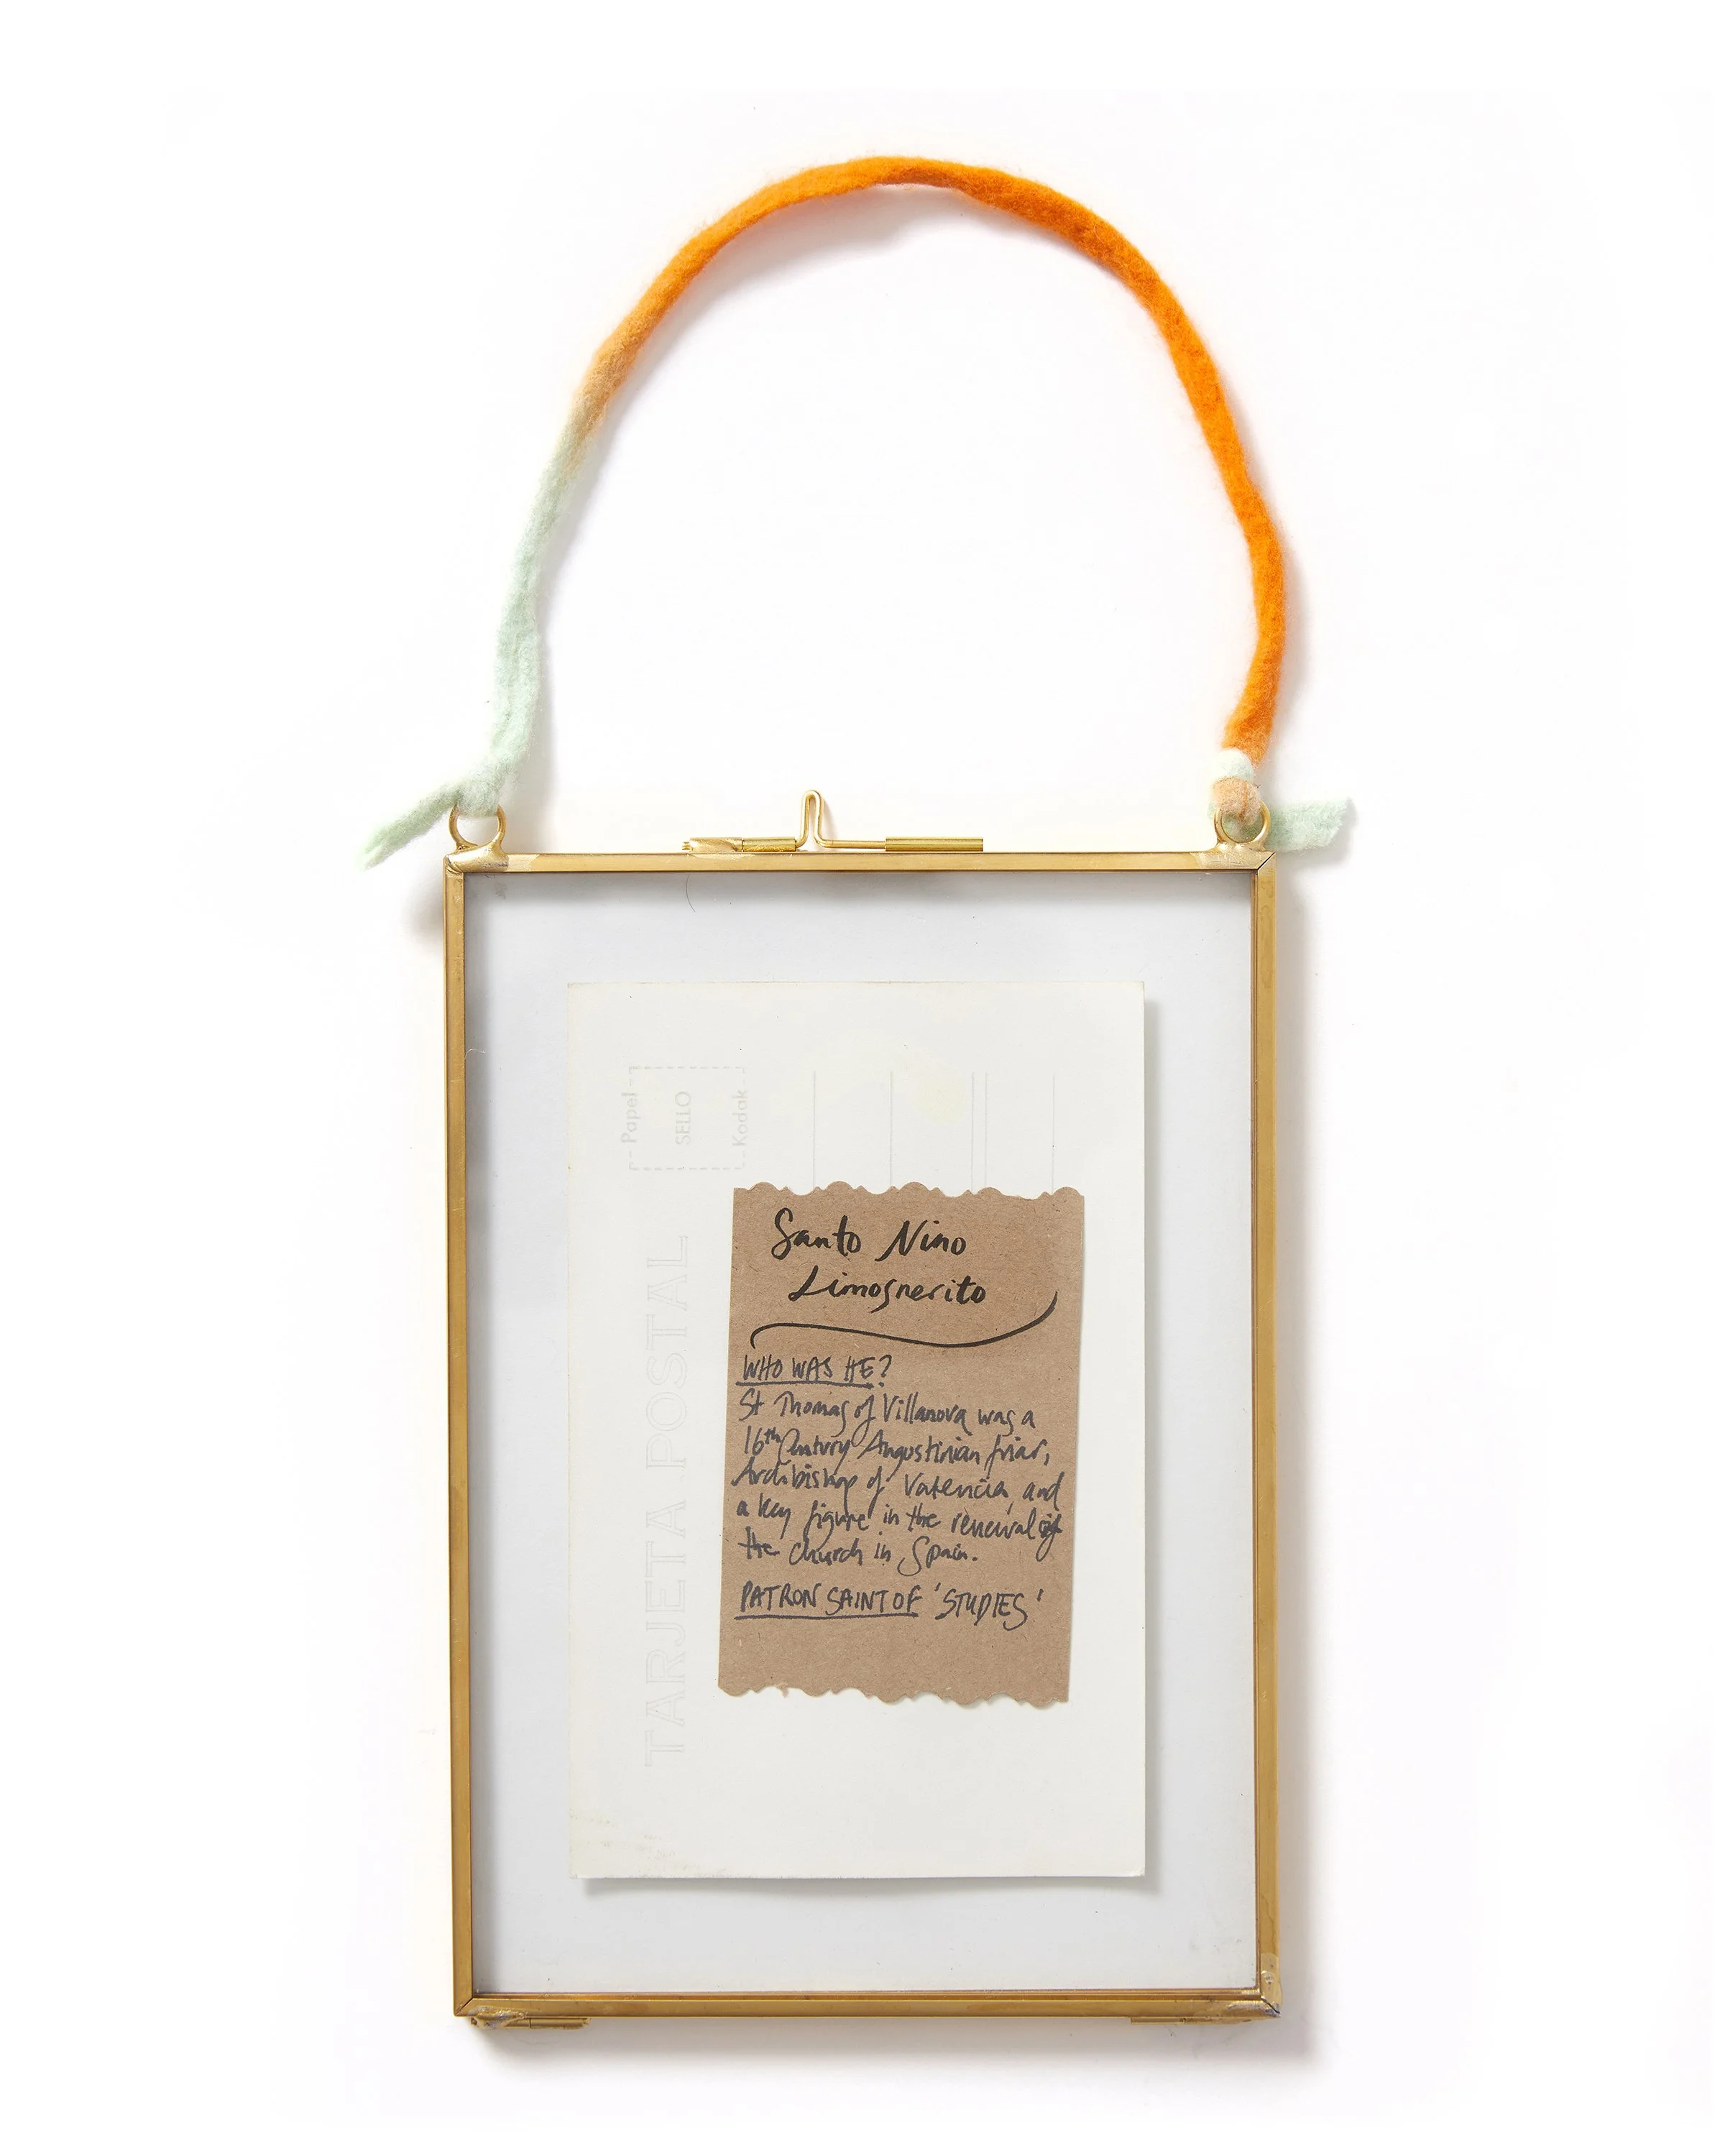 Papel
SELLO
Kodak
TARJETA POSTAL
Santo Nino
Limosnerito
WHO WAS HE?
St Thomas of Villanova was a
16th Century Augustinian friar,
Archbishop of Valencia, and
a key figure in the renewal of
the church in Spain.
PATRON SAINT OF 'STUDIES'